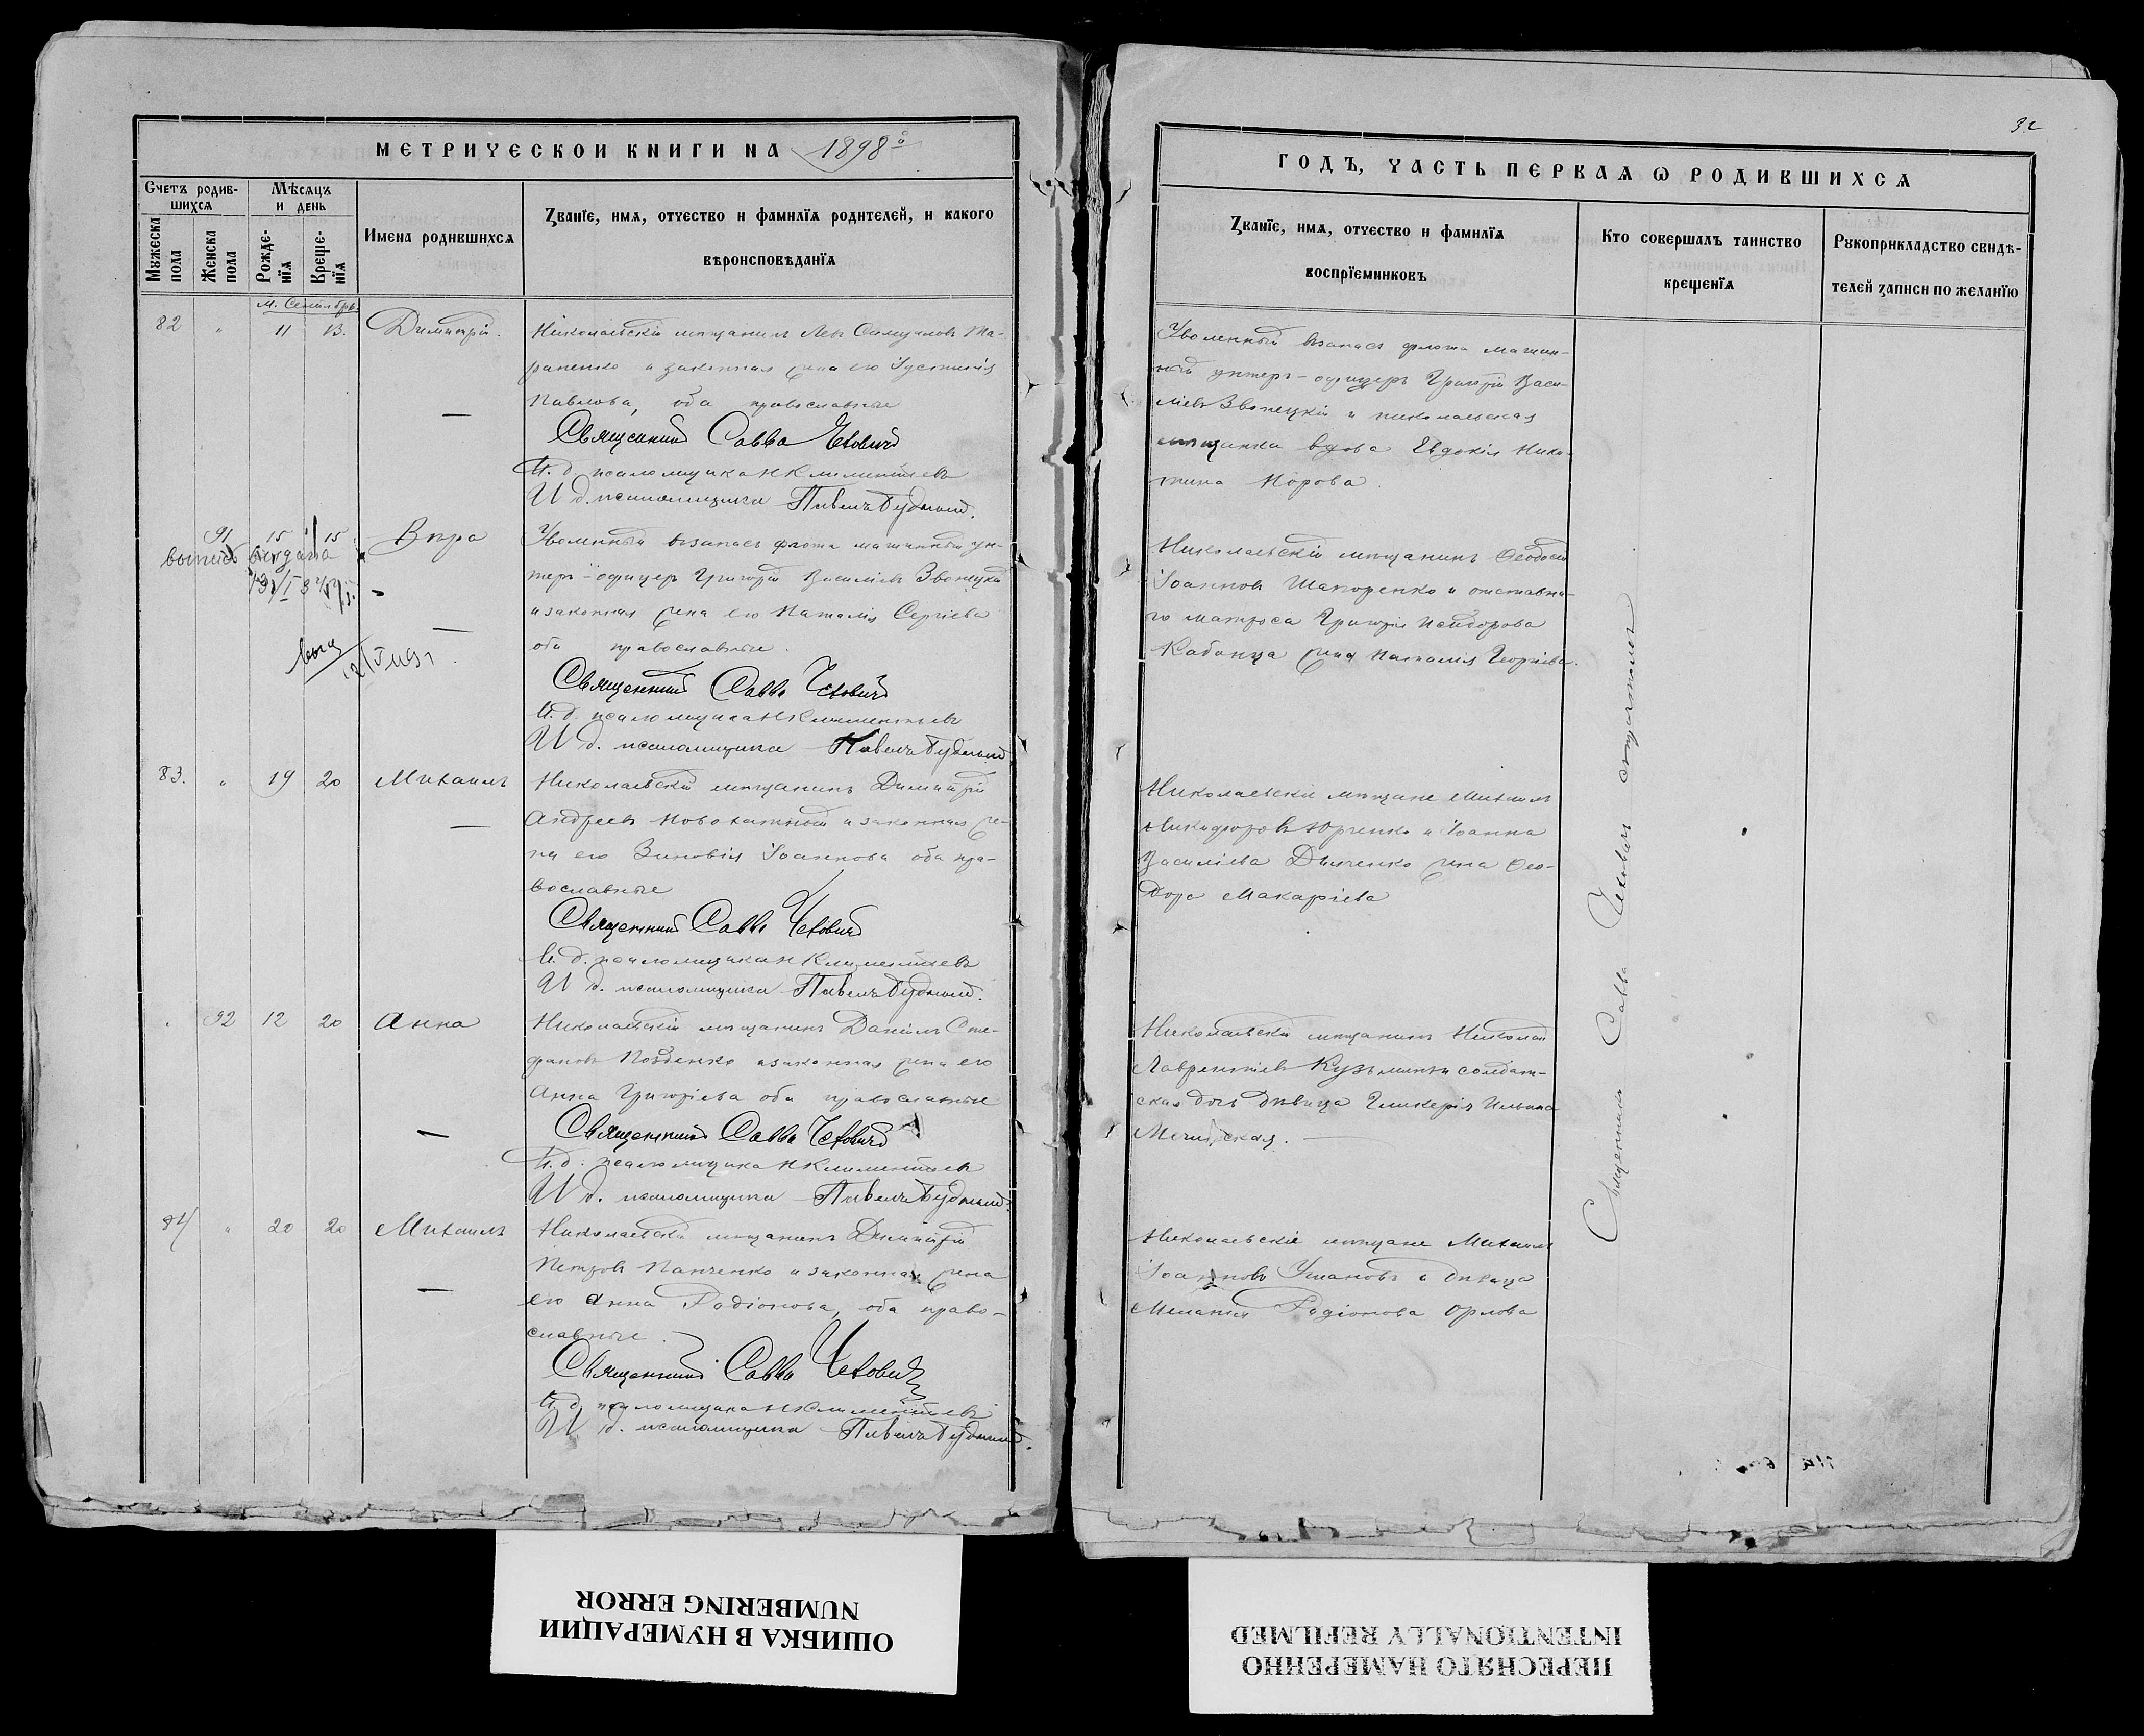 МЕТРИЧЕСКОЙ КНИГИ НА 1898 й
Счетъ родив-
шихся
Мѣсяцъ
и день
Мужеска
пола
Женска
пола
Рожде-
нїя
Креще-
нїя
Имена родившихся
Званїе, имя, отчество и фамилїя родителей, и какого
вѣроисповѣданїя
м. Сентябрь.
82 " 11 13. Димитрій.
Николаевскій мѣщанинъ Левъ Самуиловъ Та-
раненко и законная жена его Іустинія
Павлова, оба православные
Священникъ Савва Чехович
И. д. псаломщика Н Климентьевъ
И д. псаломщика Павелъ Будный.
91 15 15 Вѣра
выпись выдана
Уволенный въ запасъ флота машинный ун-
теръ-офицеръ Григорій Василіевъ Звонецкій
и законная жена его Наталія Сергіева
оба православные.
Священникъ Савва Чехович
И. д. псаломщика Н Климентьевъ
И д. псаломщика Павелъ Будный
83. " 19 20 Михаилъ
Николаевскій мѣщанинъ Димитрій
Андреевъ Новохатный и законная же-
на его Зиновія Іоаннова оба пра-
вославные
Священникъ Савва Чехович
И. д. псаломщика Н Климентьевъ
И д. псаломщика Павелъ Будный.
92 12 20 Анна
Николаевскій мѣщанинъ Даніилъ Сте-
фановъ и законная жена его
Анна Григоріева оба православные
Священникъ Савва Чехович
И. д. псаломщика Н Климентьевъ
И д. псаломщика Павелъ Будный.
84 " 20 20 Михаилъ
Николаевскій мѣщанинъ Димитрій
Петровъ Панченко и законная жена
его Анна Родіонова, оба право-
славные.
Священникъ Савва Чехович
И. д. псаломщика Н Климентьевъ
И д. псаломщика Павелъ Будный.
32
ГОДЪ, ЧАСТЬ ПЕРВАЯ Ѡ РОДИВШИХСЯ
Званїе, имя, отчество и фамилїя
воспрїемниковъ
Кто совершалъ таинство
крещенїя
Рукоприкладство свидѣ-
телей записи по желанїю
Уволенный въ запасъ флота машин-
ный унтеръ-офицеръ Григорій Васи-
ліевъ Звонецкій и николаевская
мѣщанка вдова Евдокія Ники-
тина Морова.
Николаевскій мѣщанинъ Ѳеодосій
Іоанновъ Шапоренко и отставна-
го матроса Григорія Исидорова
Кабанца жена Наталія Георгіева.
Николаевскіе мѣщане Михаилъ
Никифоровъ Юрченко и Іоанна
Василіева жена Ѳео-
дора Макаріева
Николаевскій мѣщанинъ Николай
Лаврентіевъ Кузьминъ и солдат-
ская дочь дѣвица Гликерія Ильина
Николаевскіе мѣщане Михаилъ
Іоанновъ Ушаковъ и дѣвица
Меланія Родіонова Орлова
Священникъ Савва Чехович
ОШИБКА В НУМЕРАЦИИ
NUMBERING ERROR
ПЕРЕСНЯТО НАМЕРЕННО
INTENTIONALLY REFILMED